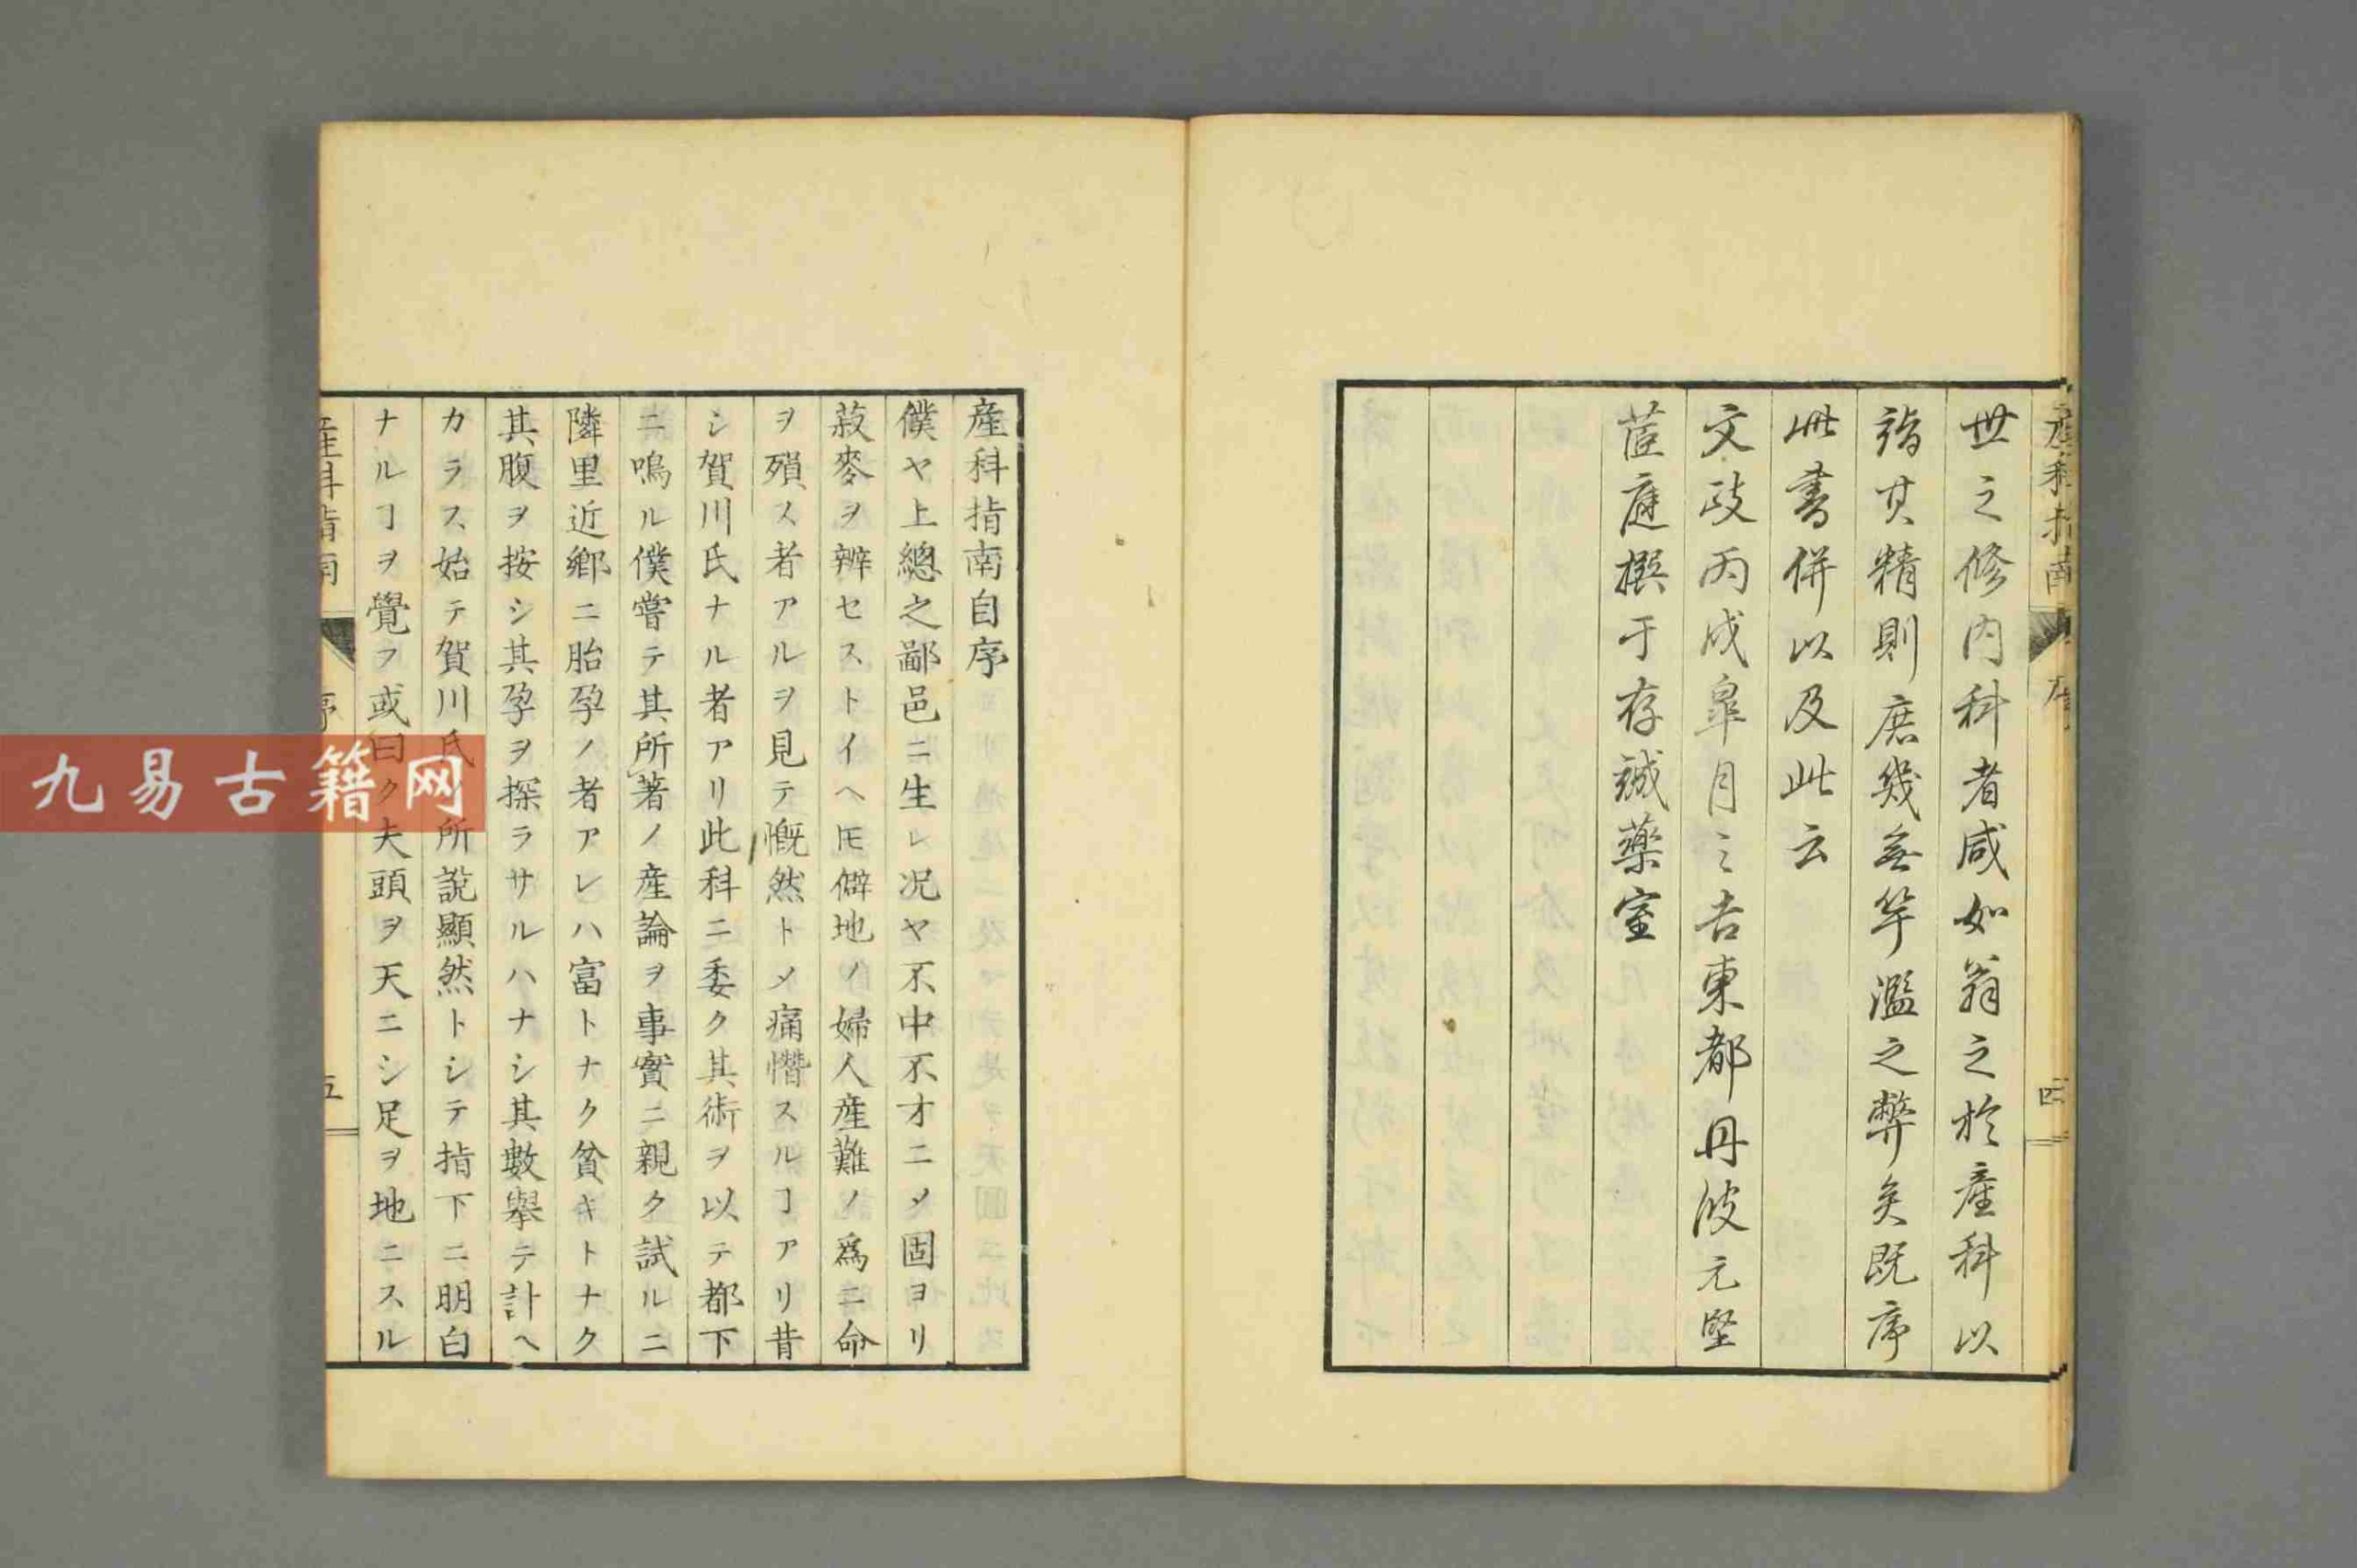 産科指南
序
四
世之修内科者咸如翁之於産科以
詣其精則庶幾無竽濫之弊矣既序
此書併以及此云
文政丙戌皐月之吉東都丹波元堅
茝庭撰于存誠藥室
産科指南自序
僕ヤ上總之鄙邑ニ生レ况ヤ不中不才ニメ固ヨリ
菽麥ヲ辨セストイヘ𪜈僻地ノ婦人産難ノ爲ニ命
ヲ殞ス者アルヲ見テ慨然トメ痛懵スルヿアリ昔
シ賀川氏ナル者アリ此科ニ委ク其術ヲ以テ都下
ニ鳴ル僕嘗テ其所著ノ産論ヲ事實ニ親ク試ルニ
隣里近鄉ニ胎孕ノ者アレハ富トナク貧キトナク
其腹ヲ按シ其孕ヲ探ラサルハナシ其數擧テ計ヘ
カラス始テ賀川氏ノ所說顯然トシテ指下ニ明白
ナルヿヲ覺フ或曰ク夫頭ヲ天ニシ足ヲ地ニスル
産科指南
序
五
九易古籍网